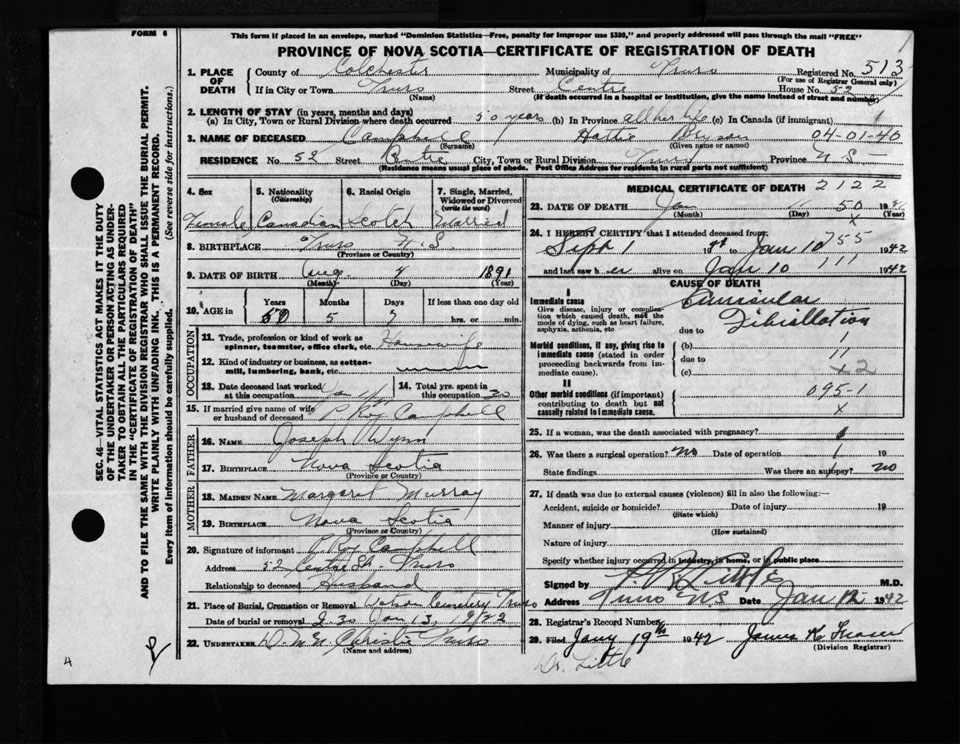 FORM 6
This form if placed in an envelope, marked "Dominion Statistics—Free, penalty for improper use $300," and properly addressed will pass through the mail "FREE"
PROVINCE OF NOVA SCOTIA—CERTIFICATE OF REGISTRATION OF DEATH
1. PLACE OF DEATH County of Colchester Municipality of Truro Registered No. 513
(For use of Registrar General only)
If in City or Town Truro Street Centre House No. 52
(Name) (If death occurred in a hospital or institution, give the name instead of street and number)
2. LENGTH OF STAY (in years, months and days)
(a) In City, Town or Rural Division where death occurred 50 years (b) In Province all her life (c) In Canada (if immigrant)
3. NAME OF DECEASED Campbell Hattie 04-01-40
(Surname) (Given name or names)
RESIDENCE No. 52 Street Centre City, Town or Rural Division Truro Province N.S.
(Residence means usual place of abode. Post Office Address for residents in rural parts not sufficient)
4. Sex Female
5. Nationality (Citizenship) Canadian
6. Racial Origin Scotch
7. Single, Married, Widowed or Divorced (write the word) Married
8. BIRTHPLACE Truro N.S.
(Province or Country)
9. DATE OF BIRTH Aug 4 1891
(Month) (Day) (Year)
10. AGE in Years 50 Months 5 Days 7 If less than one day old hrs. or min.
OCCUPATION
11. Trade, profession or kind of work as spinner, teamster, office clerk, etc. Housewife
12. Kind of industry or business, as cotton-mill, lumbering, bank, etc.
13. Date deceased last worked at this occupation
14. Total yrs. spent in this occupation 20
15. If married give name of wife or husband of deceased P. Roy Campbell
FATHER
16. NAME Joseph Wynn
17. BIRTHPLACE Nova Scotia
(Province or Country)
MOTHER
18. MAIDEN NAME Margaret Murray
19. BIRTHPLACE Nova Scotia
(Province or Country)
20. Signature of informant P. Roy Campbell
Address 52 Centre St. Truro
Relationship to deceased Husband
21. Place of Burial, Cremation or Removal Cemetery Truro
Date of burial or removal 2.30 Jan 13, 1942
22. UNDERTAKER Christie Truro
(Name and address)
MEDICAL CERTIFICATE OF DEATH 2122
23. DATE OF DEATH Jan 11 50 19
(Month) (Day) (Year)
x
24. I HEREBY CERTIFY that I attended deceased from:
Sept 1 19 to Jan 10 755 1942
and last saw her alive on Jan 10 111 1942
CAUSE OF DEATH
I
Immediate cause
Give disease, injury or complication which caused death, not the mode of dying, such as heart failure, asphyxia, asthenia, etc
Auricular Fibrillation
due to
Morbid conditions, if any, giving rise to immediate cause (stated in order proceeding backwards from immediate cause).
(b) 1
due to 11
(c) x2
II
Other morbid conditions (if important) contributing to death but not causally related to immediate cause.
095-1
x
25. If a woman, was the death associated with pregnancy?
26. Was there a surgical operation? No Date of operation 19
State findings Was there an autopsy? no
27. If death was due to external causes (violence) fill in also the following:—
Accident, suicide or homicide? Date of injury 19
(State which)
Manner of injury
(How sustained)
Nature of injury
Specify whether injury occurred in industry, in home, or in public place
Signed by Little M.D.
Address Truro N.S. Date Jan 12 1942
28. Registrar's Record Number
29. Filed Jany 19th 1942 James K. Fraser
(Division Registrar)
Dr. Little
SEC. 46—VITAL STATISTICS ACT MAKES IT THE DUTY
OF THE UNDERTAKER OR PERSON ACTING AS UNDER-
TAKER TO OBTAIN ALL THE PARTICULARS REQUIRED
IN THE "CERTIFICATE OF REGISTRATION OF DEATH"
AND TO FILE THE SAME WITH THE DIVISION REGISTRAR WHO SHALL ISSUE THE BURIAL PERMIT.
WRITE PLAINLY WITH UNFADING INK. THIS IS A PERMANENT RECORD.
Every item of Information should be carefully supplied. (See reverse side for instructions.)
4